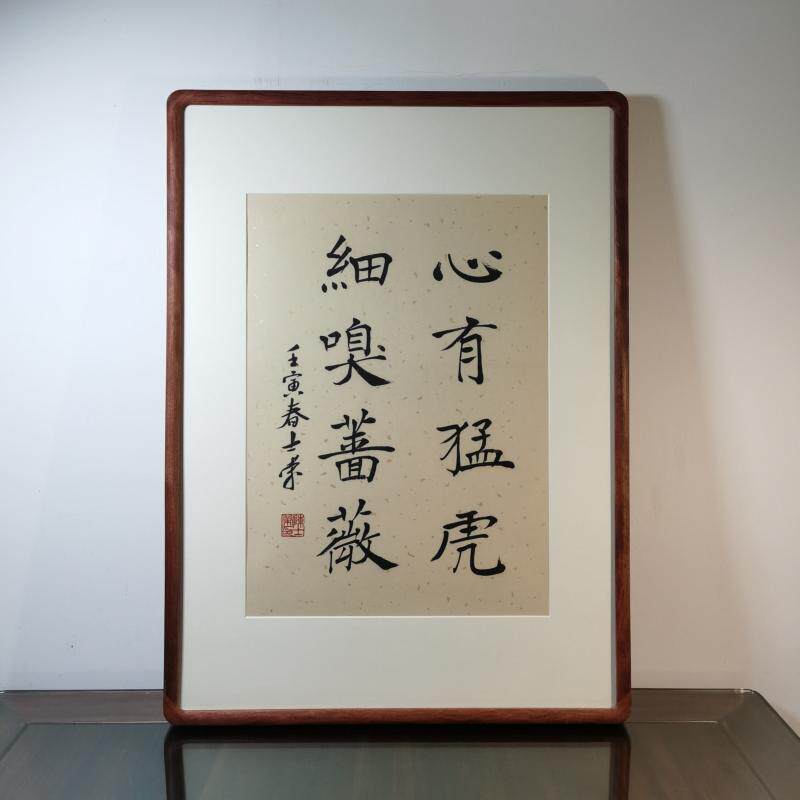 心有猛虎
細嗅薔薇
壬寅春士榮